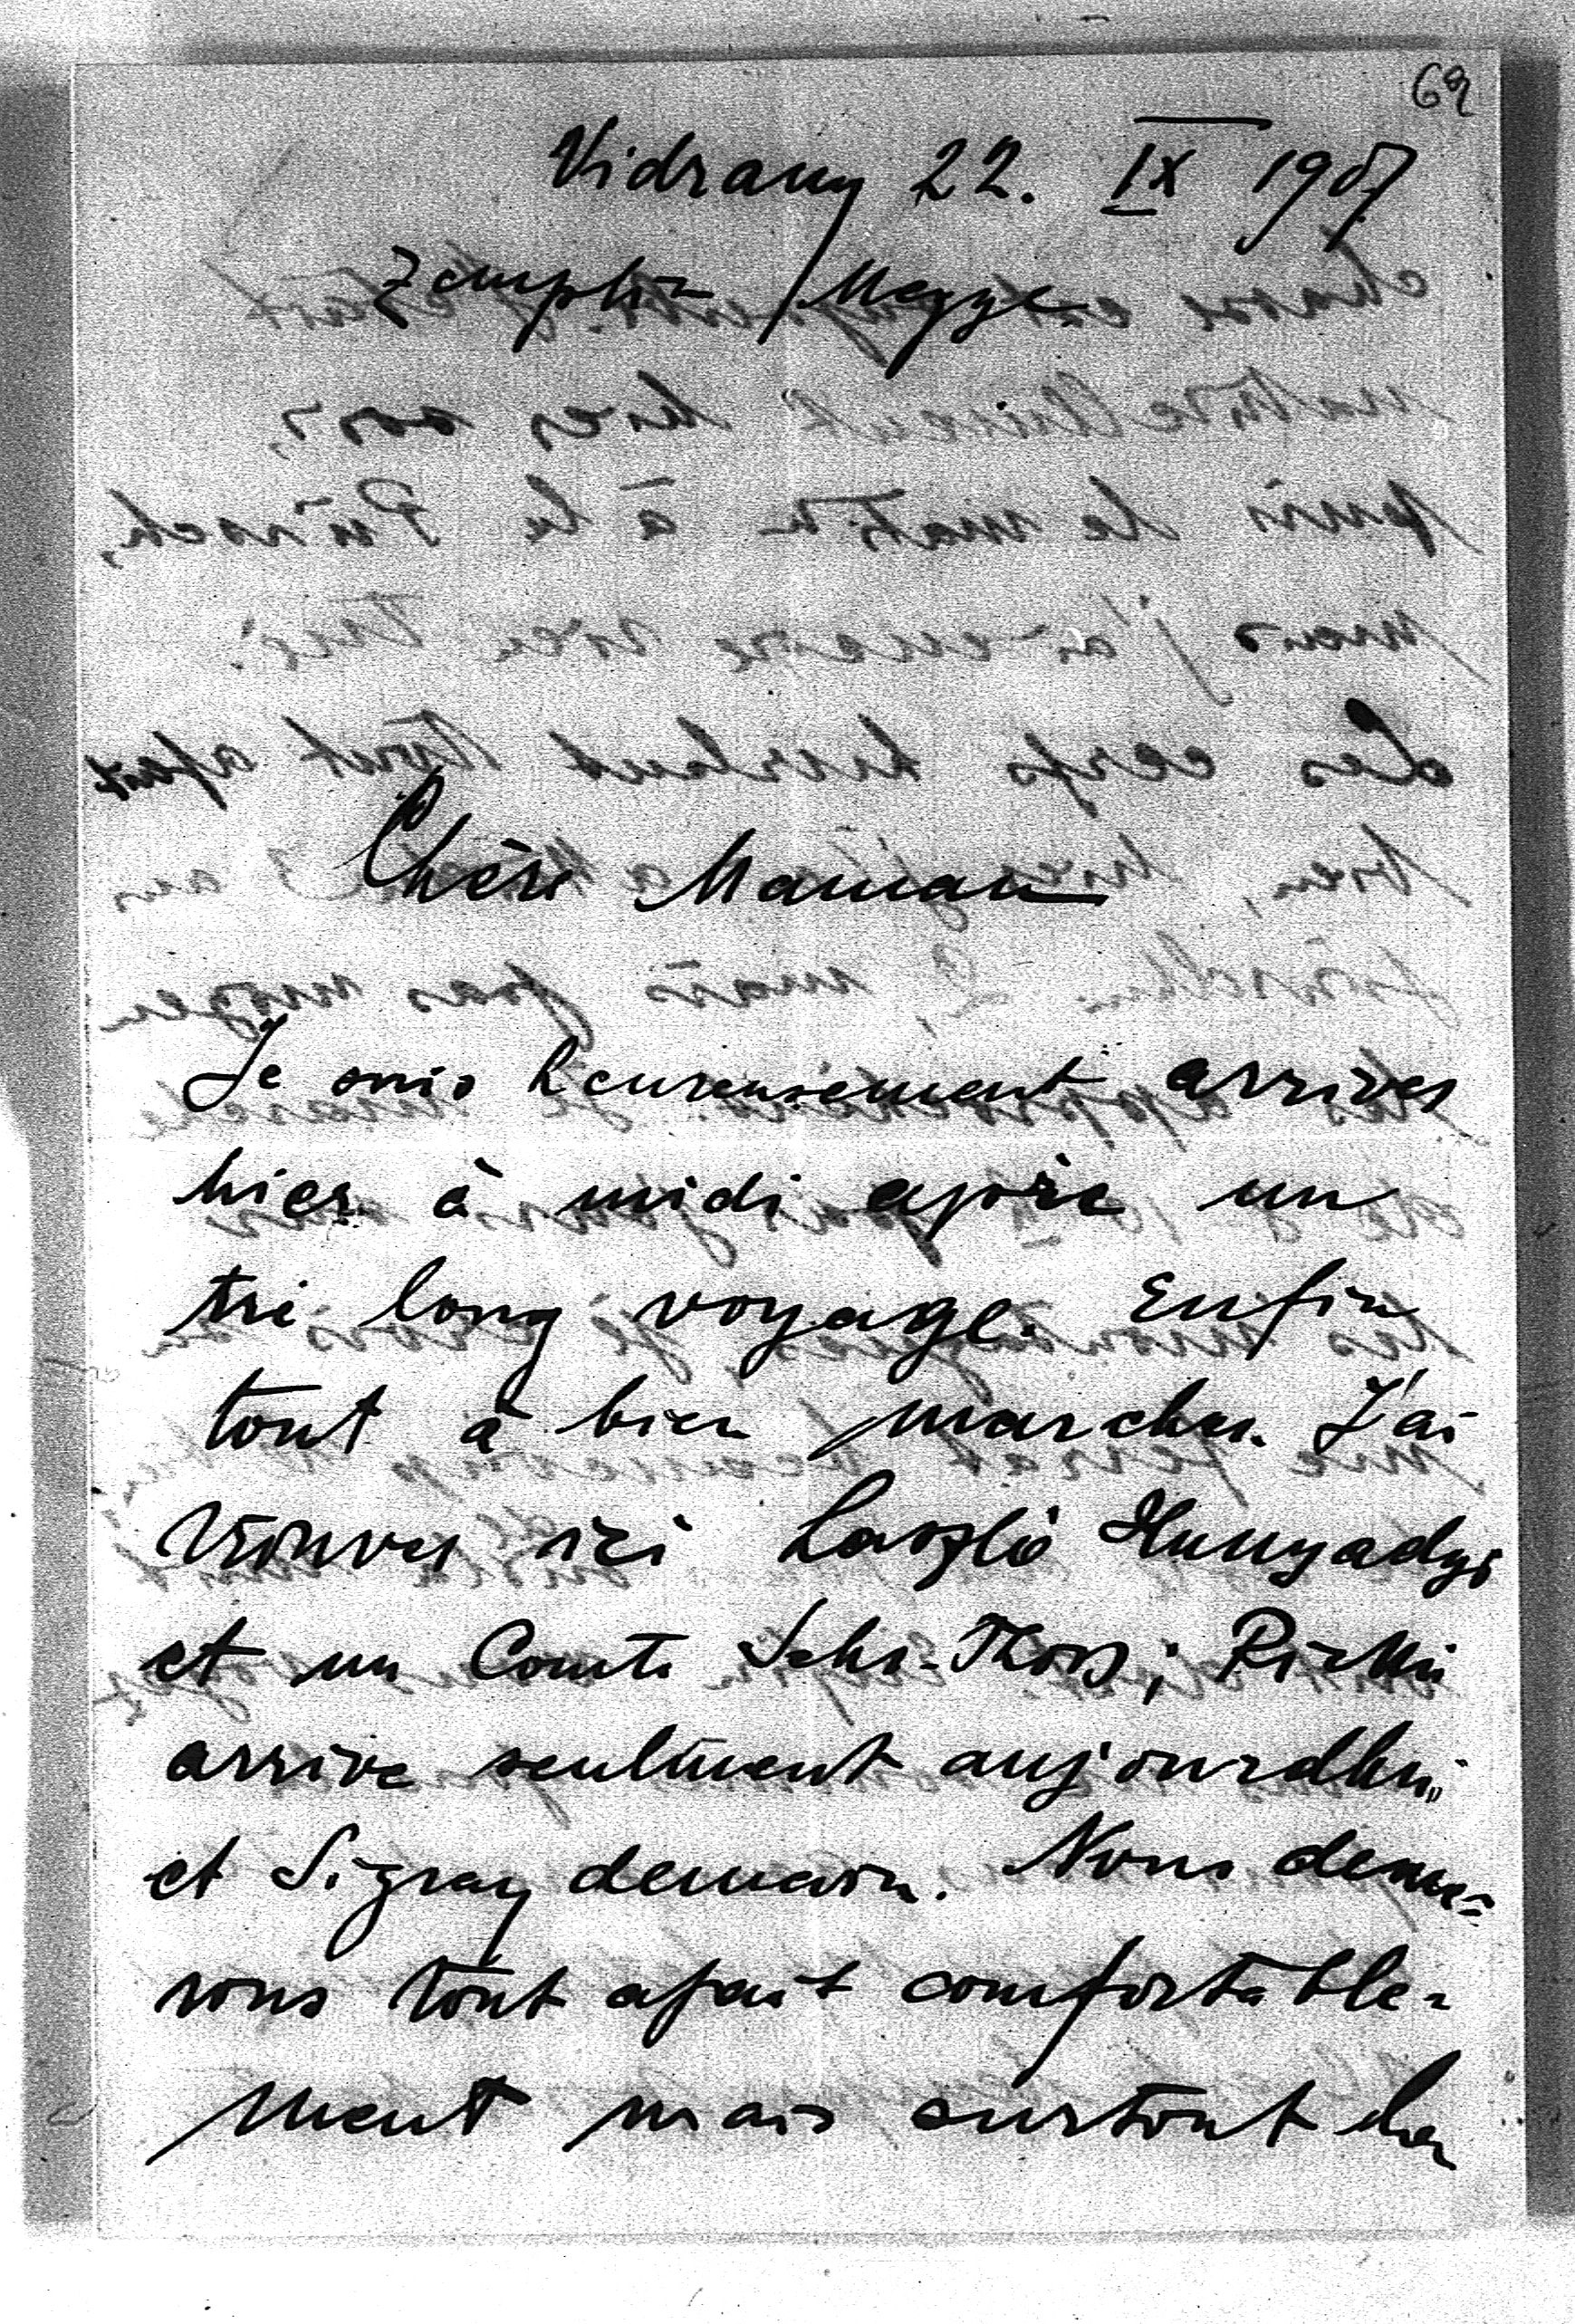 69
Vidrany 22. IX 1907
Zemplin / Megye
Chère Maman
Je suis heureusement arrives
hier à midi après un
tré long voyage. Enfin
tout a bien marcher. J'ai
trouves ici Laszló Hunyadys
et un Comte Sehr-Thoss;
arrive seulment aujourdhui
et Sigray demain. Nous deme=
rons tout afait comfortable-
ment mais surtout la